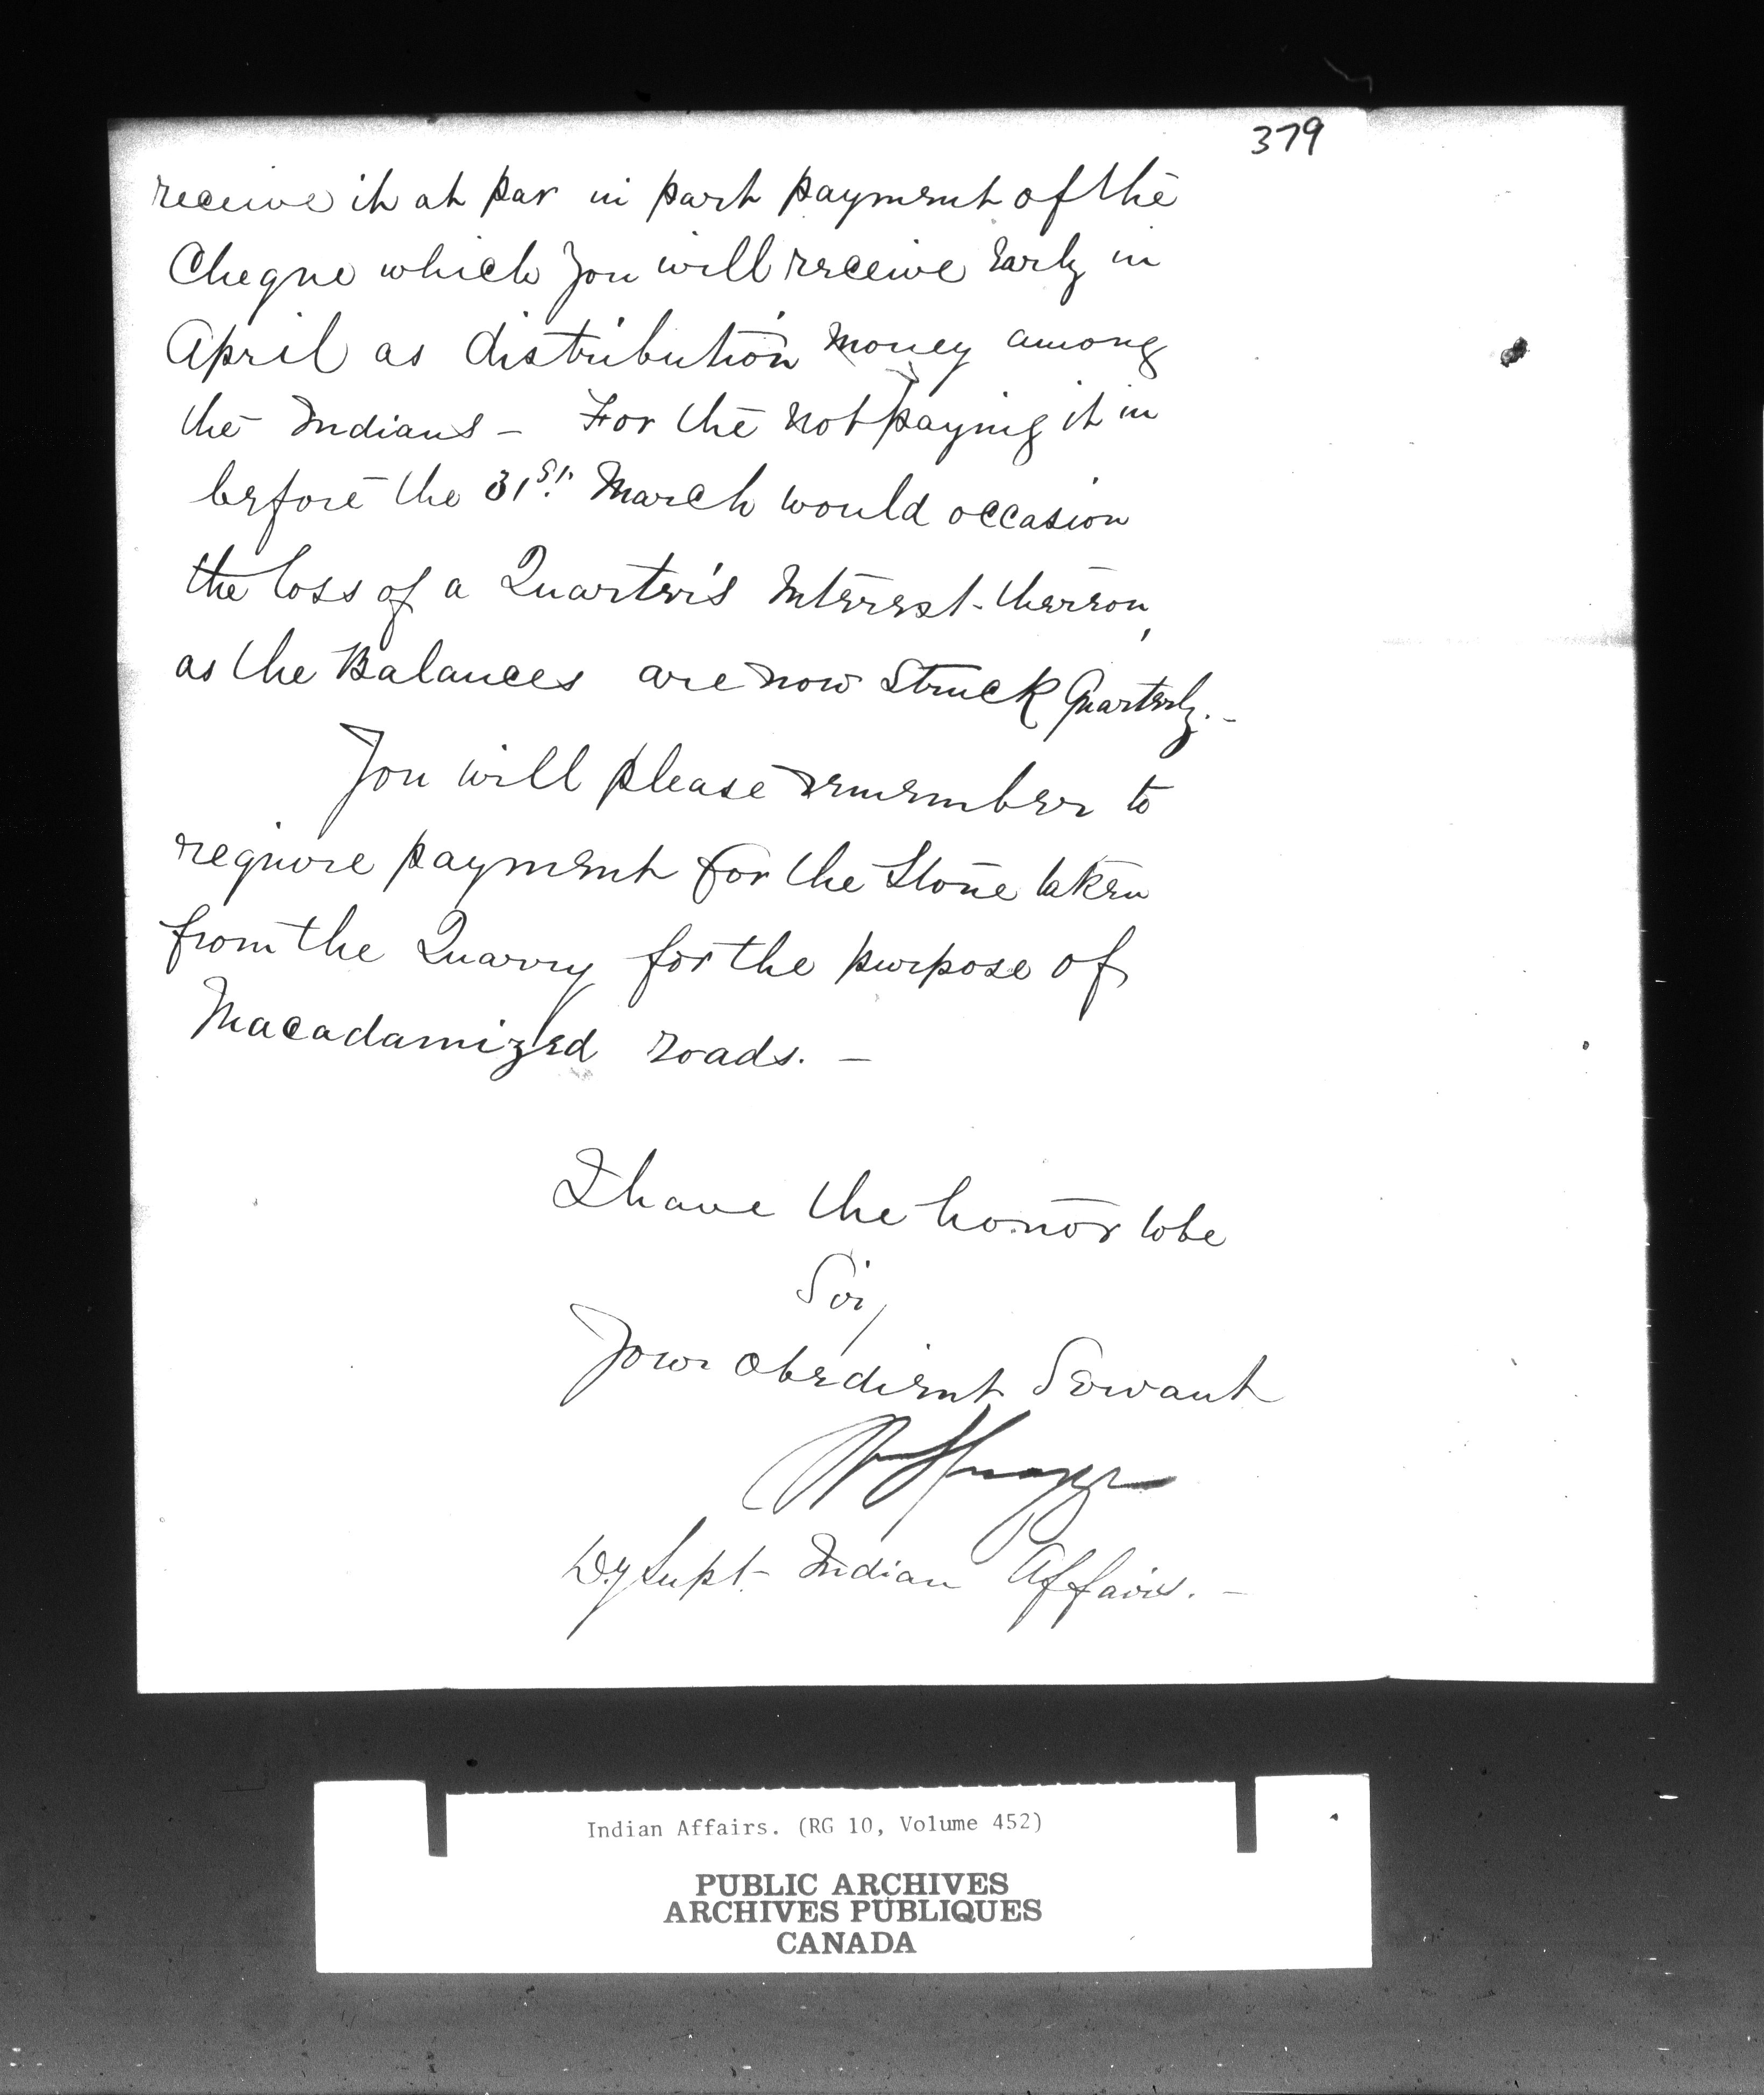 379
receive it at par in part payment of the
Cheque which you will receive Early in
April as distribution money among
the Indians - For the not paying it in
before the 31st. March would occasion
the loss of a Quarter's Interest thereon,
as the Balances are now Struck Quarterly. -
You will please remember to
require payment for the Stone taken
from the Quarry for the purpose of
Macadamized roads. -
I have the honor to be
Sir,
Your obedient Servant
Dy Supt Indian Affairs. -
Indian Affairs. (RG 10, Volume 452)
PUBLIC ARCHIVES
ARCHIVES PUBLIQUES
CANADA